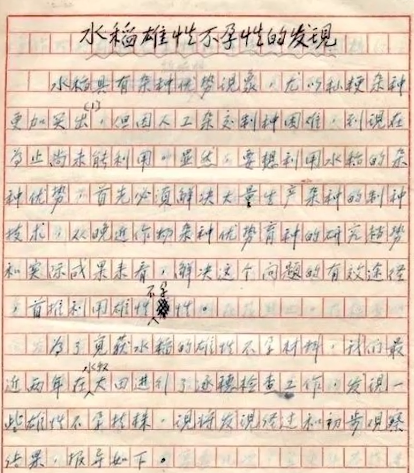 水稻雄性不孕性的发现
水稻具有杂种优势现象,尤以籼粳杂种
更加突出(1),但因人工杂交制种困难,到现在
为止尚未能利用。显然,要想利用水稻的杂
种优势,首先必须解决大量生产杂种的制种
技术,从晚近作物杂种优势育种的研究趋势
和实际成果来看,解决这个问题的有效途径
,首推利用雄性不孕性。
为了觅获水稻的雄性不孕材料,我们最
近两年在水稻大田进行了逐穗检查工作,发现一
些雄性不孕植株,现将发现经过和初步观察
结果,报导如下。